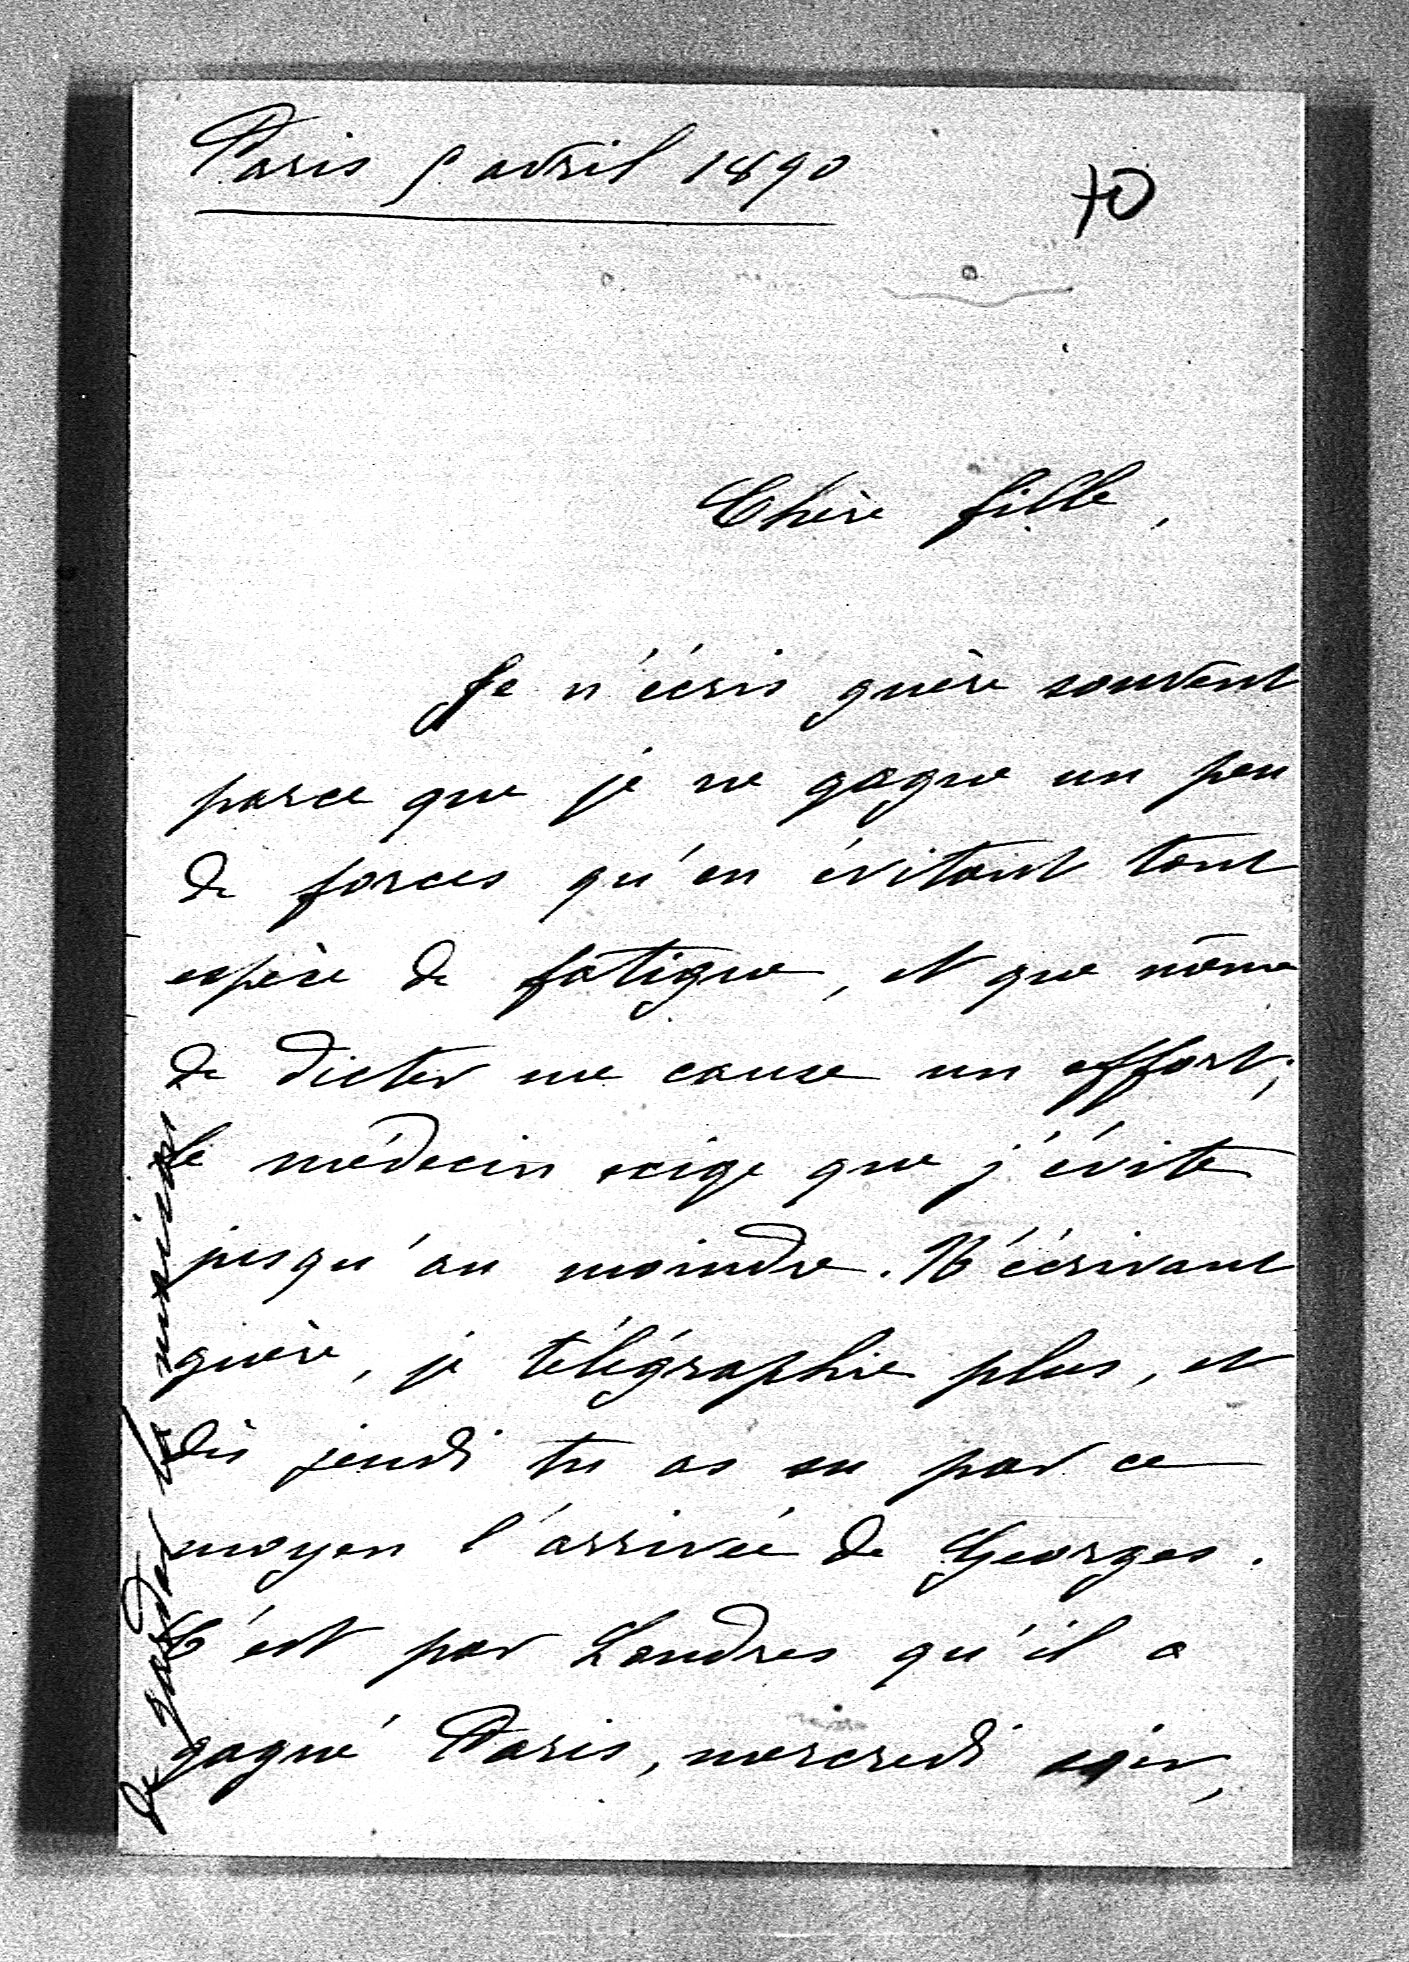 Paris 5 avril 1890
70
Chère fille,
Je n'écris guère souvent
parce que je ne gagne un peu
de forces qu'en évitant tout
espèce de fatigue, et que même
de dicter me cause un effort;
le médecin exige que j'évite
jusqu'au moindre. N'écrivant
guère, je télégraphie plus, et
dès jeudi tu as su par ce
moyen l'arrivée de Georges.
C'est par Londres qu'il a
gagné Paris, mercredi soir,
de garder la maison